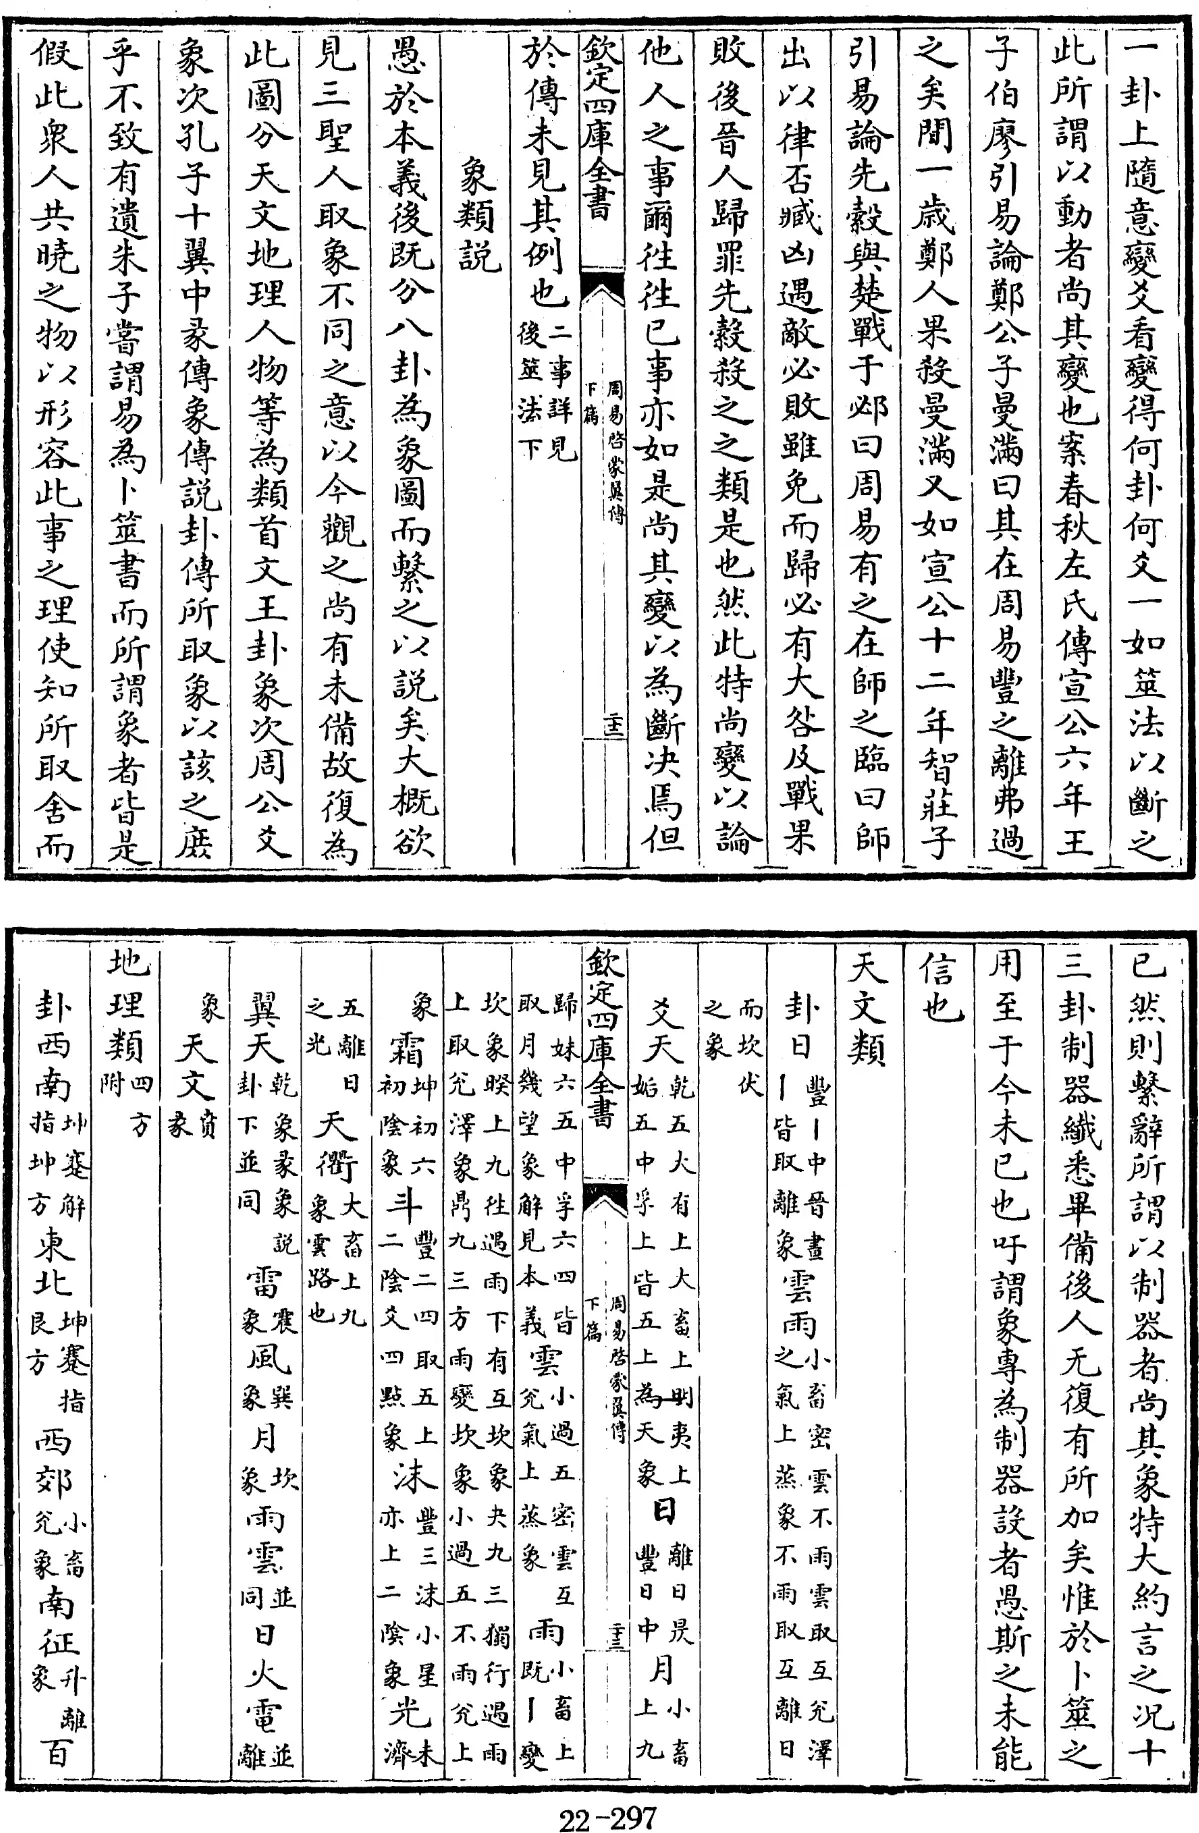 一卦上隨意變爻看變得何卦何爻一如筮法以斷之
此所謂以動者尚其變也案春秋左氏傳宣公六年王
子伯廖引易論鄭公子曼滿曰其在周易豐之離弗過
之矣閒一歲鄭人果殺曼滿又如宣公十二年智莊子
引易論先縠與楚戰于邲曰周易有之在師之臨曰師
出以律否臧凶遇敵必敗雖免而歸必有大咎及戰果
敗後晉人歸罪先縠殺之之類是也然此特尚變以論
他人之事爾往往已事亦如是尚其變以為斷决焉但
欽定四庫全書
周易啓蒙翼傳
下篇
二十二
於傳未見其例也二事詳見
後筮法下
象類説
愚於本義後既分八卦為象圖而繫之以説矣大概欲
見三聖人取象不同之意以今觀之尚有未備故復為
此圖分天文地理人物等為類首文王卦象次周公爻
象次孔子十翼中彖傳象傳説卦傳所取象以該之庶
乎不致有遺朱子嘗謂易為卜筮書而所謂象者皆是
假此衆人共曉之物以形容此事之理使知所取舍而
已然則繫辭所謂以制器者尚其象特大約言之况十
三卦制器纎悉畢備後人无復有所加矣惟於卜筮之
用至于今未已也吁謂象專為制器設者愚斯之未能
信也
天文類
卦日豐丨中晉晝
丨皆取離象雲雨小畜密雲不雨雲取互兊澤
之氣上蒸象不雨取互離日
而坎伏
之象
爻天乾五大有上大畜上明夷上
姤五中孚上皆五上為天象日離日昃
豐日中月小畜
上九
欽定四庫全書
周易啓蒙翼傳
下篇
二十三
歸妹六五中孚六四皆
取月幾望象解見本義雲小過五密雲互
兊氣上蒸象雨小畜上
既丨變
坎象睽上九往遇雨下有互坎象夬九三獨行遇雨
上取兊澤象鼎九三方雨變坎象小過五不雨兊上
象霜坤初六
初陰象斗豐二四取五上
二陰爻四點象沬豐三沬小星
亦上二陰象光未
濟
五離日
之光天衢大畜上九
象雲路也
翼天乾象彖象説
卦下並同雷震
象風巽
象月坎
象雨雲並
同日火電並
離
象天文賁
彖
地理類四方
附
卦西南坤蹇解
指坤方東北坤蹇指
艮方西郊小畜
兊象南征升離
象百
22-297